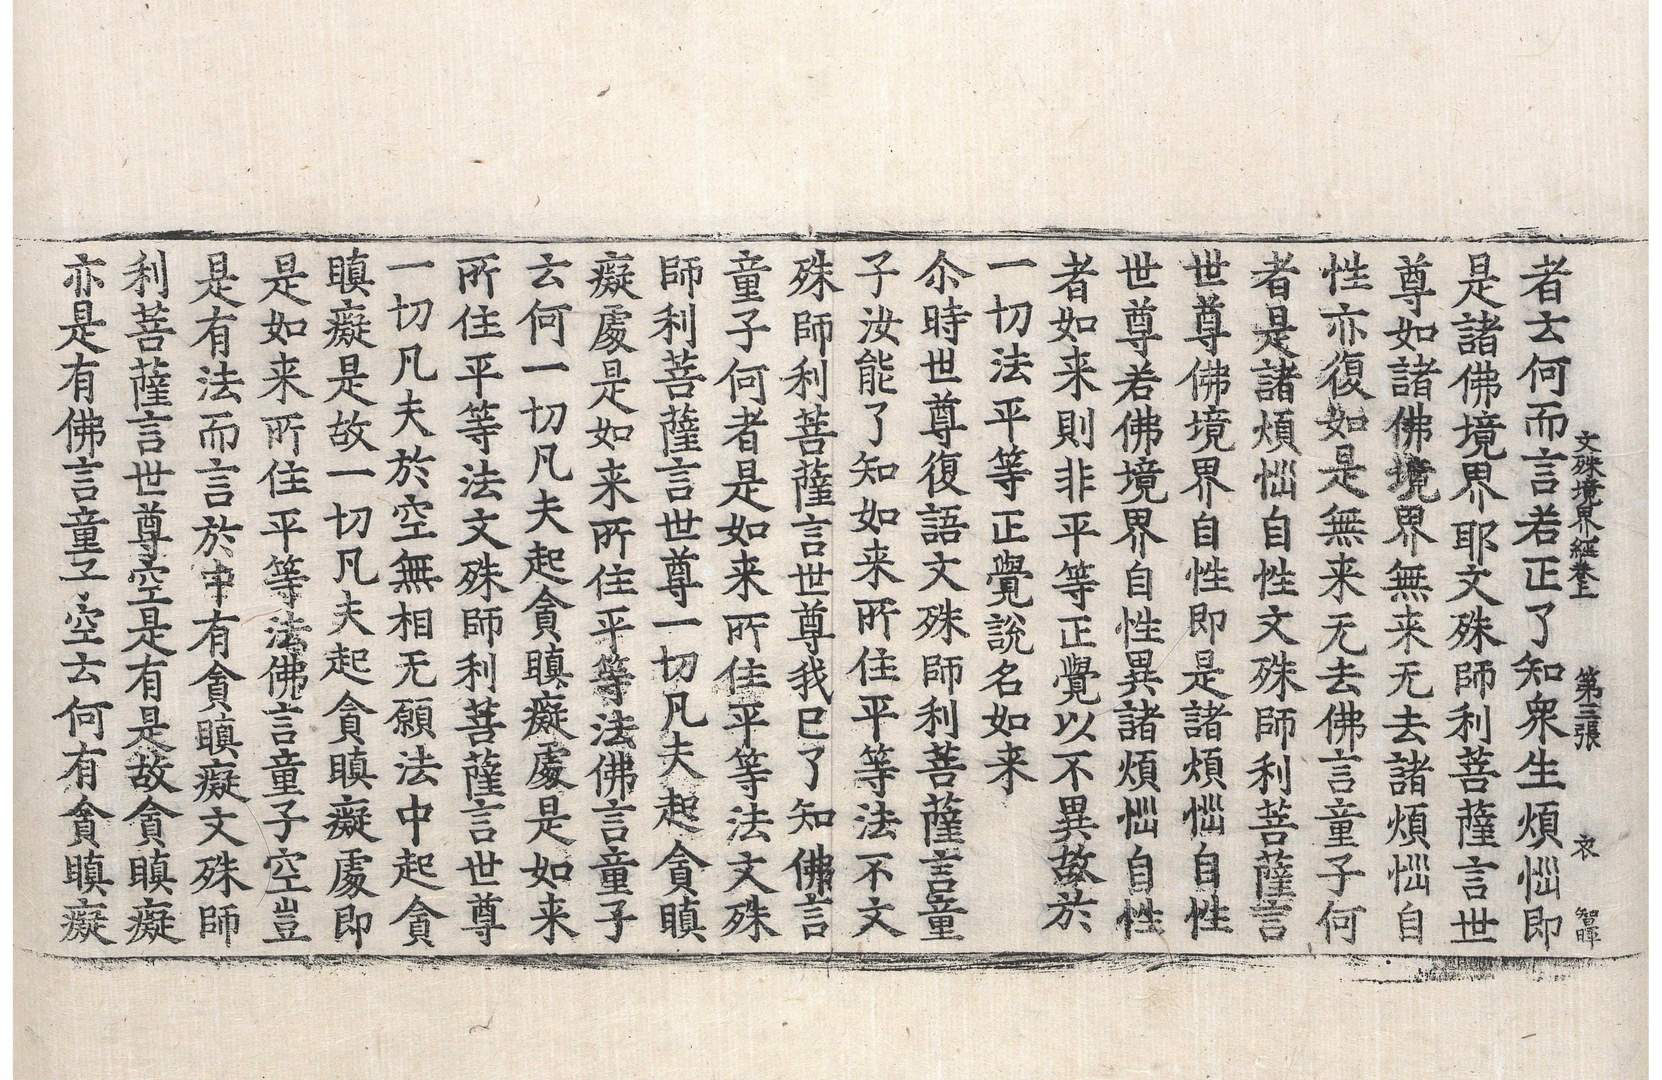 文殊境界經卷上 第三張 衣 智暉
者云何而言若正了知衆生煩惱即
是諸佛境界耶文殊師利菩薩言世
尊如諸佛境界無来无去諸煩惱自
性亦復如是無来无去佛言童子何
者是諸煩惱自性文殊師利菩薩言
世尊佛境界自性即是諸煩惱自性
世尊若佛境界自性異諸煩惱自性
者如来則非平等正覺以不異故於
一切法平等正覺說名如来
尒時世尊復語文殊師利菩薩言童
子汝能了知如来所住平等法不文
殊師利菩薩言世尊我已了知佛言
童子何者是如来所住平等法文殊
師利菩薩言世尊一切凡夫起貪瞋
癡處是如来所住平等法佛言童子
云何一切凡夫起貪瞋癡處是如来
所住平等法文殊師利菩薩言世尊
一切凡夫於空無相无願法中起貪
瞋癡是故一切凡夫起貪瞋癡處即
是如来所住平等法佛言童子空豈
是有法而言於中有貪瞋癡文殊師
利菩薩言世尊空是有是故貪瞋癡
亦是有佛言童子空云何有貪瞋癡